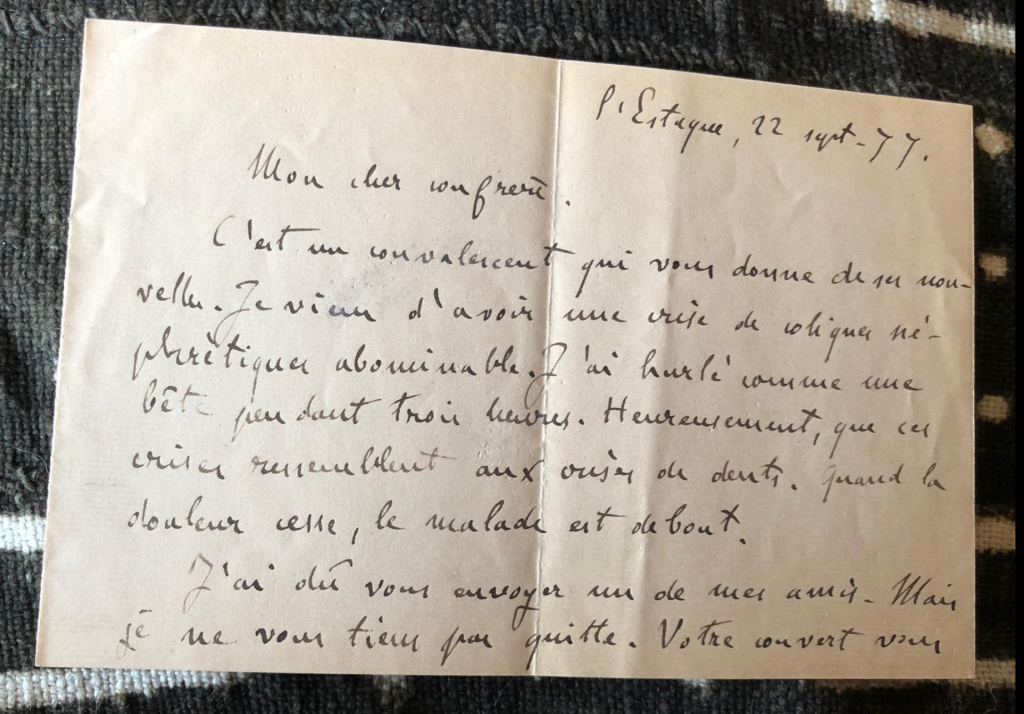 l'Estaque, 22 sept-77.
Mon cher confrère.
C'est un convalescent qui vous donne de ses nou-
velles. Je viens d'avoir une crise de coliques né-
phrétiques abominable. J'ai hurlé comme une
bête pendant trois heures. Heureusement, que ces
crises ressemblent aux crises de dents. Quand la
douleur cesse, le malade est debout.
J'ai dû vous envoyer un de mes amis. Mais
je ne vous tiens pas quitte. Votre couvert vous